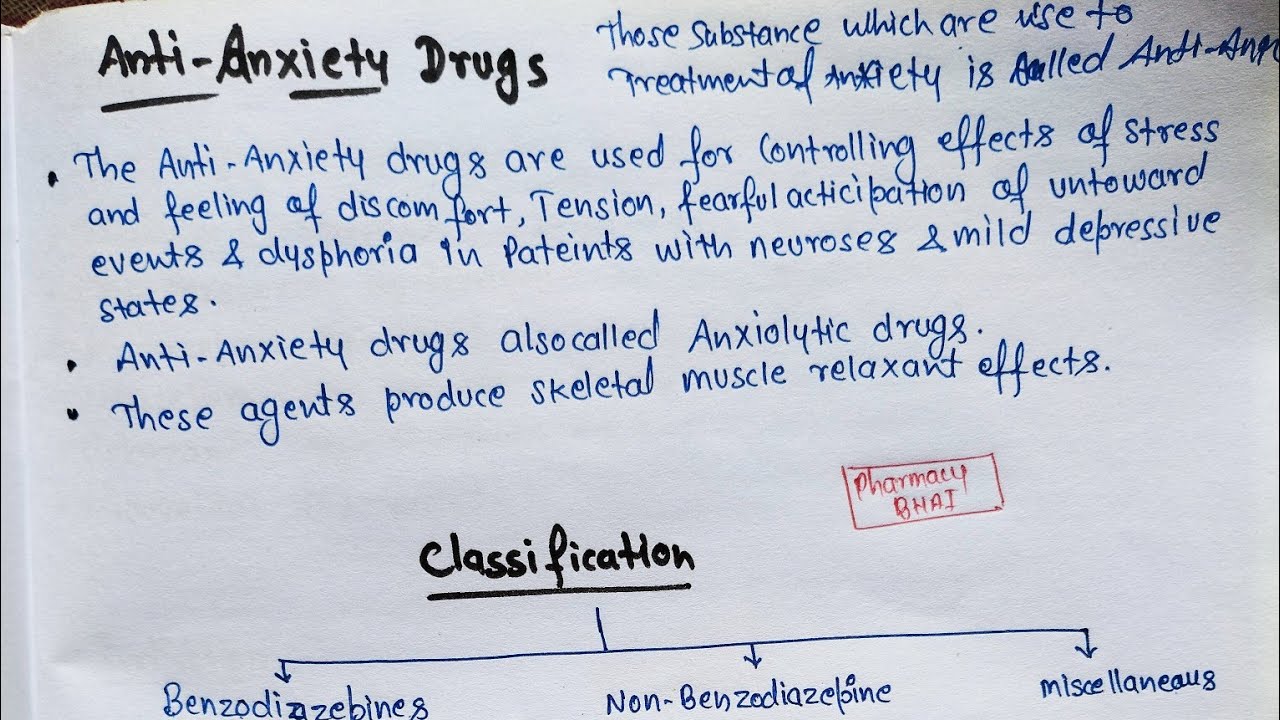 Anti-Anxiety Drugs
Those substance which are use to
Treatment of Anxiety is called Anti-Anx
The Anti-Anxiety drugs are used for controlling effects of stress
and feeling of discomfort, Tension, fearful acticipation of untoward
events & dysphoria in Pateints with neuroses & mild depressive
states.
Anti-Anxiety drugs also called Anxiolytic drugs.
These agents produce skeletal muscle relaxant effects.
Pharmacy
BHAI
Classification
Benzodiazepines Non-Benzodiazepine miscellaneous